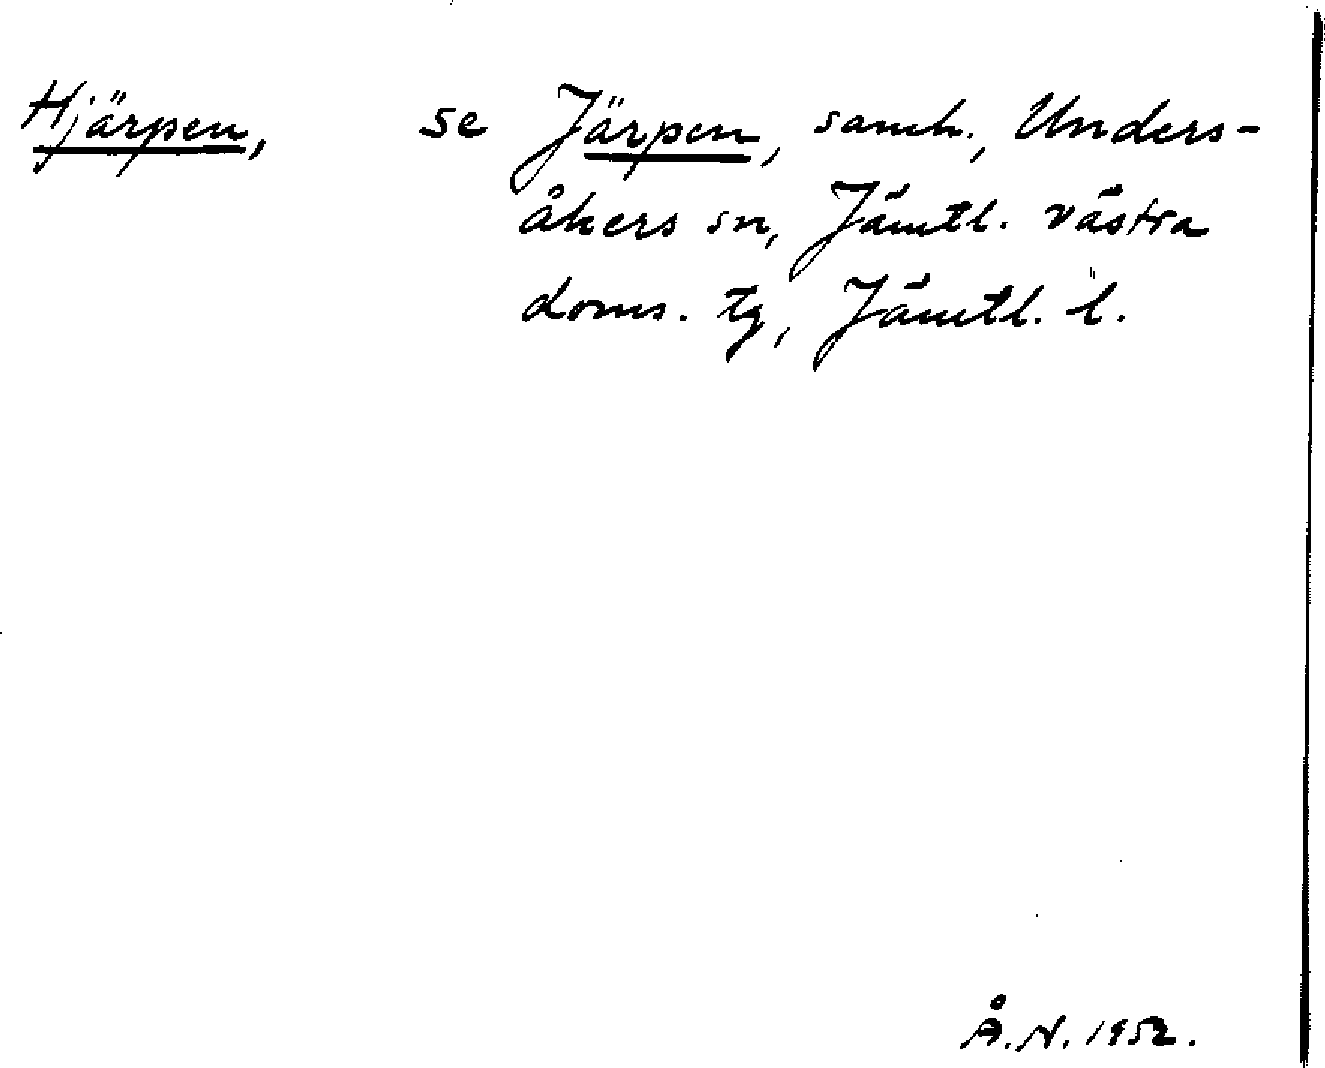 Hjärpen, se Järpen, samh., Unders-
åkers sn, Jämtl. västra
doms. tg, Jämtl. l.
Å.N. 1952.